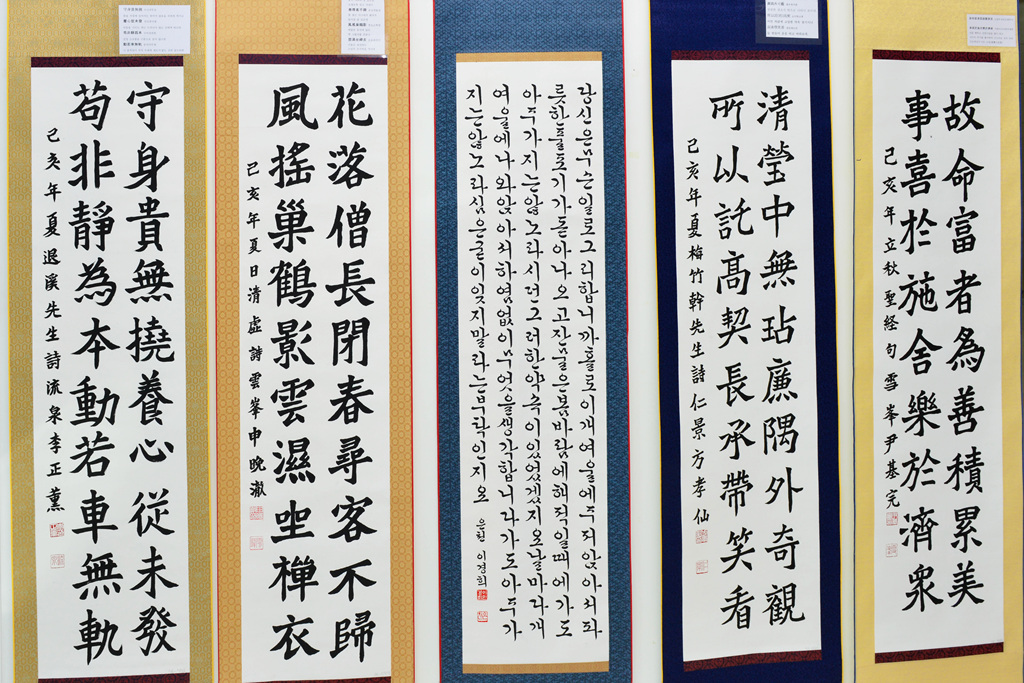 守身貴無撓養心從未發
苟非靜為本動若車無軌
己亥年夏退溪先生詩流泉李正薰
花落僧長閉春尋客不歸
風搖巢鶴影雲濕坐禅衣
己亥年夏日清虛詩雲峯申晩澈
당신은무슨일로그리합니까홀로이개여울에주저앉아서파
릇한풀포기가돋아나오고잔물은봄바람에헤적일때에가도
아주가지는않노라시던그러한약속이있었겠지요날마다개
여울에나와앉아서하염없이무엇을생각합니다가도아주가
지는않노라심은굳이잊지말라는부탁인지요 은헌 이경희
清瑩中無玷廉隅外奇觀
所以託高契長承帶笑看
己亥年夏梅竹軒先生詩仁景方孝仙
故命富者為善積累美
事喜於施舍樂於濟衆
己亥年立秋聖経句雪峯尹基完